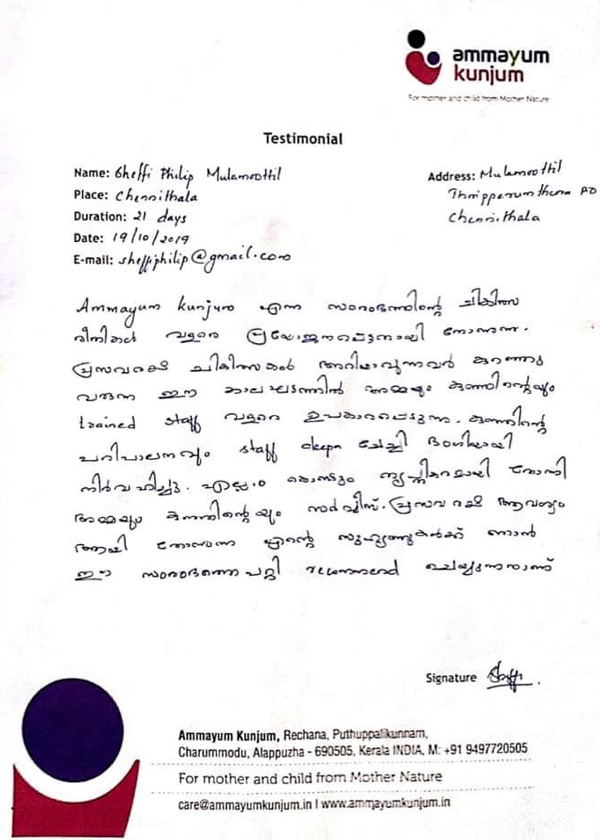 ammayum
kunjum
For mother and child from Mother Nature
Testimonial
Name: Sheffi Philip Mulamoottil
Place: Chennithala
Duration: 21 days
Date: 19/10/2019
E-mail: sheffiphilip@gmail.com
Address: Mulamoottil
Thripperumthura PO
Chennithala
Ammayum kunjum എന്ന സംരംഭത്തിന്റെ ചികിത്സ
രീതികൾ വളരെ പ്രയോജനപ്പെടുന്നതായി തോന്നുന്നു.
പ്രസവരക്ഷ ചികിത്സകൾ അറിയാവുന്നവർ കുറഞ്ഞു
വരുന്ന ഈ കാലഘട്ടത്തിൽ അമ്മയും കുഞ്ഞിന്റെയും
trained staff വളരെ ഉപകാരപ്പെടുന്നു. കുഞ്ഞിന്റെ
പരിപാലനവും staff deepa ചേച്ചി ഭംഗിയായി
നിർവഹിച്ചു. എല്ലാം കൊണ്ടും തൃപ്തികരമായി തോന്നി
അമ്മയും കുഞ്ഞിന്റെയും സർവ്വീസ്. പ്രസവരക്ഷ ആവശ്യം
ആയി തോന്നുന്ന എന്റെ സുഹൃത്തുകൾക്ക് ഞാൻ
ഈ സംരംഭത്തെ പറ്റി ചെയ്യുന്നതാണ്
Signature
Ammayum Kunjum, Rechana, Puthuppalikunnam,
Charummodu, Alappuzha - 690505, Kerala INDIA, M: +91 9497720505
For mother and child from Mother Nature
care@ammayumkunjum.in | www.ammayumkunjum.in